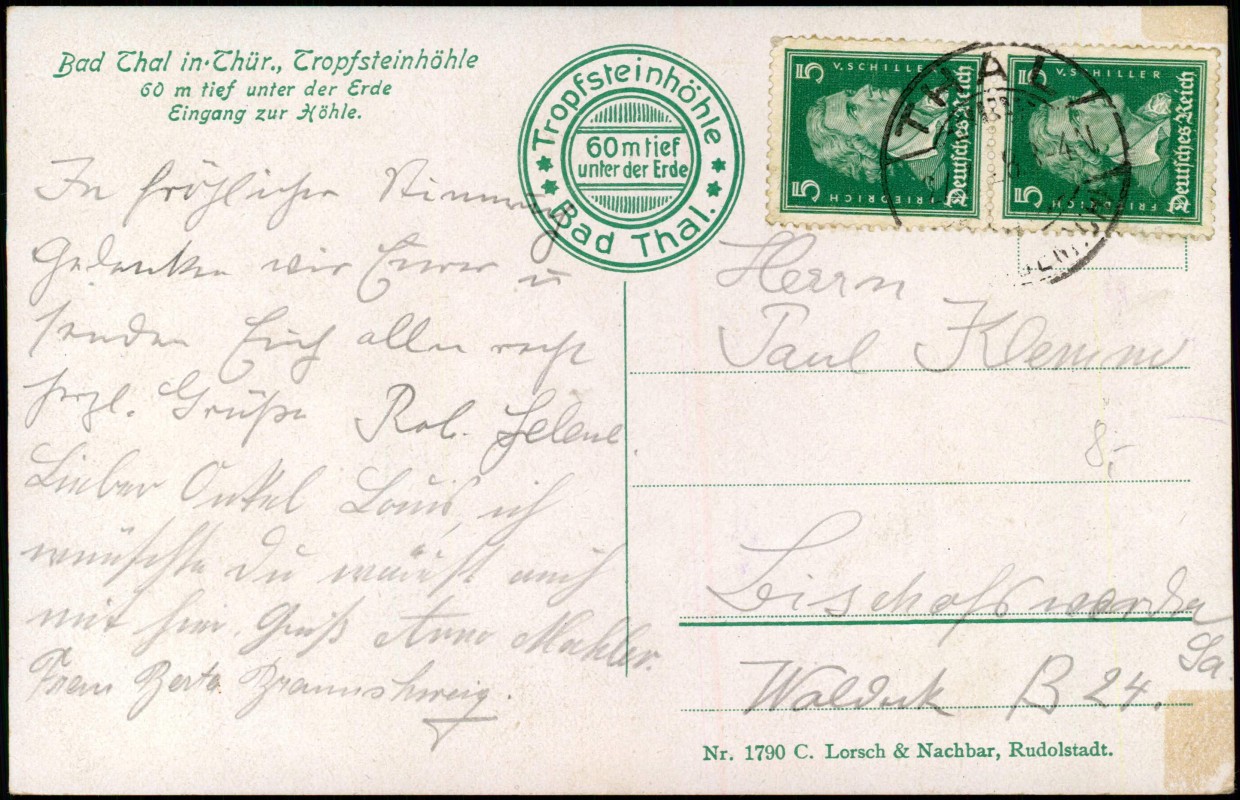 Bad Thal in Thür., Tropfsteinhöhle
60 m tief unter der Erde
Eingang zur Höhle.
Tropfsteinhöhle
60 m tief
unter der Erde
Bad Thal.
5 V. SCHILLER
FRIEDRICH 5
Deutsches Reich
5 V. SCHILLER
FRIEDRICH 5
Deutsches Reich
THAL
In fröhlicher Stimmung
Gedenken wir Eurer u
senden Euch allen recht
herzl. Grüße Rob. Helene
Lieber Onkel Louis, ich
wünschte Du wärst auch
mit hier. Gruß Anna Mahler.
Frau Berta Braunshweig.
Herrn
Paul Klemm
8,-
Bischofswerda
Sa.
B 24.
Nr. 1790 C. Lorsch & Nachbar, Rudolstadt.